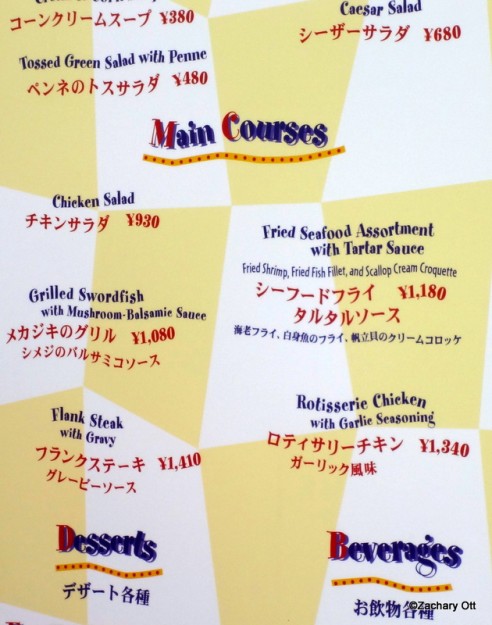 コーンクリームスープ ¥380
Caesar Salad
シーザーサラダ ¥680
Tossed Green Salad with Penne
ペンネのトスサラダ ¥480
Main Courses
Chicken Salad
チキンサラダ ¥930
Fried Seafood Assortment
with Tartar Sauce
Fried Shrimp, Fried Fish Fillet, and Scallop Cream Croquette
シーフードフライ ¥1,180
タルタルソース
海老フライ、白身魚のフライ、帆立貝のクリームコロッケ
Grilled Swordfish
with Mushroom-Balsamic Sauce
メカジキのグリル ¥1,080
シメジのバルサミコソース
Rotisserie Chicken
with Garlic Seasoning
ロティサリーチキン ¥1,340
ガーリック風味
Flank Steak
with Gravy
フランクステーキ ¥1,410
グレービーソース
Desserts
デザート各種
Beverages
お飲物各種
©Zachary Ott